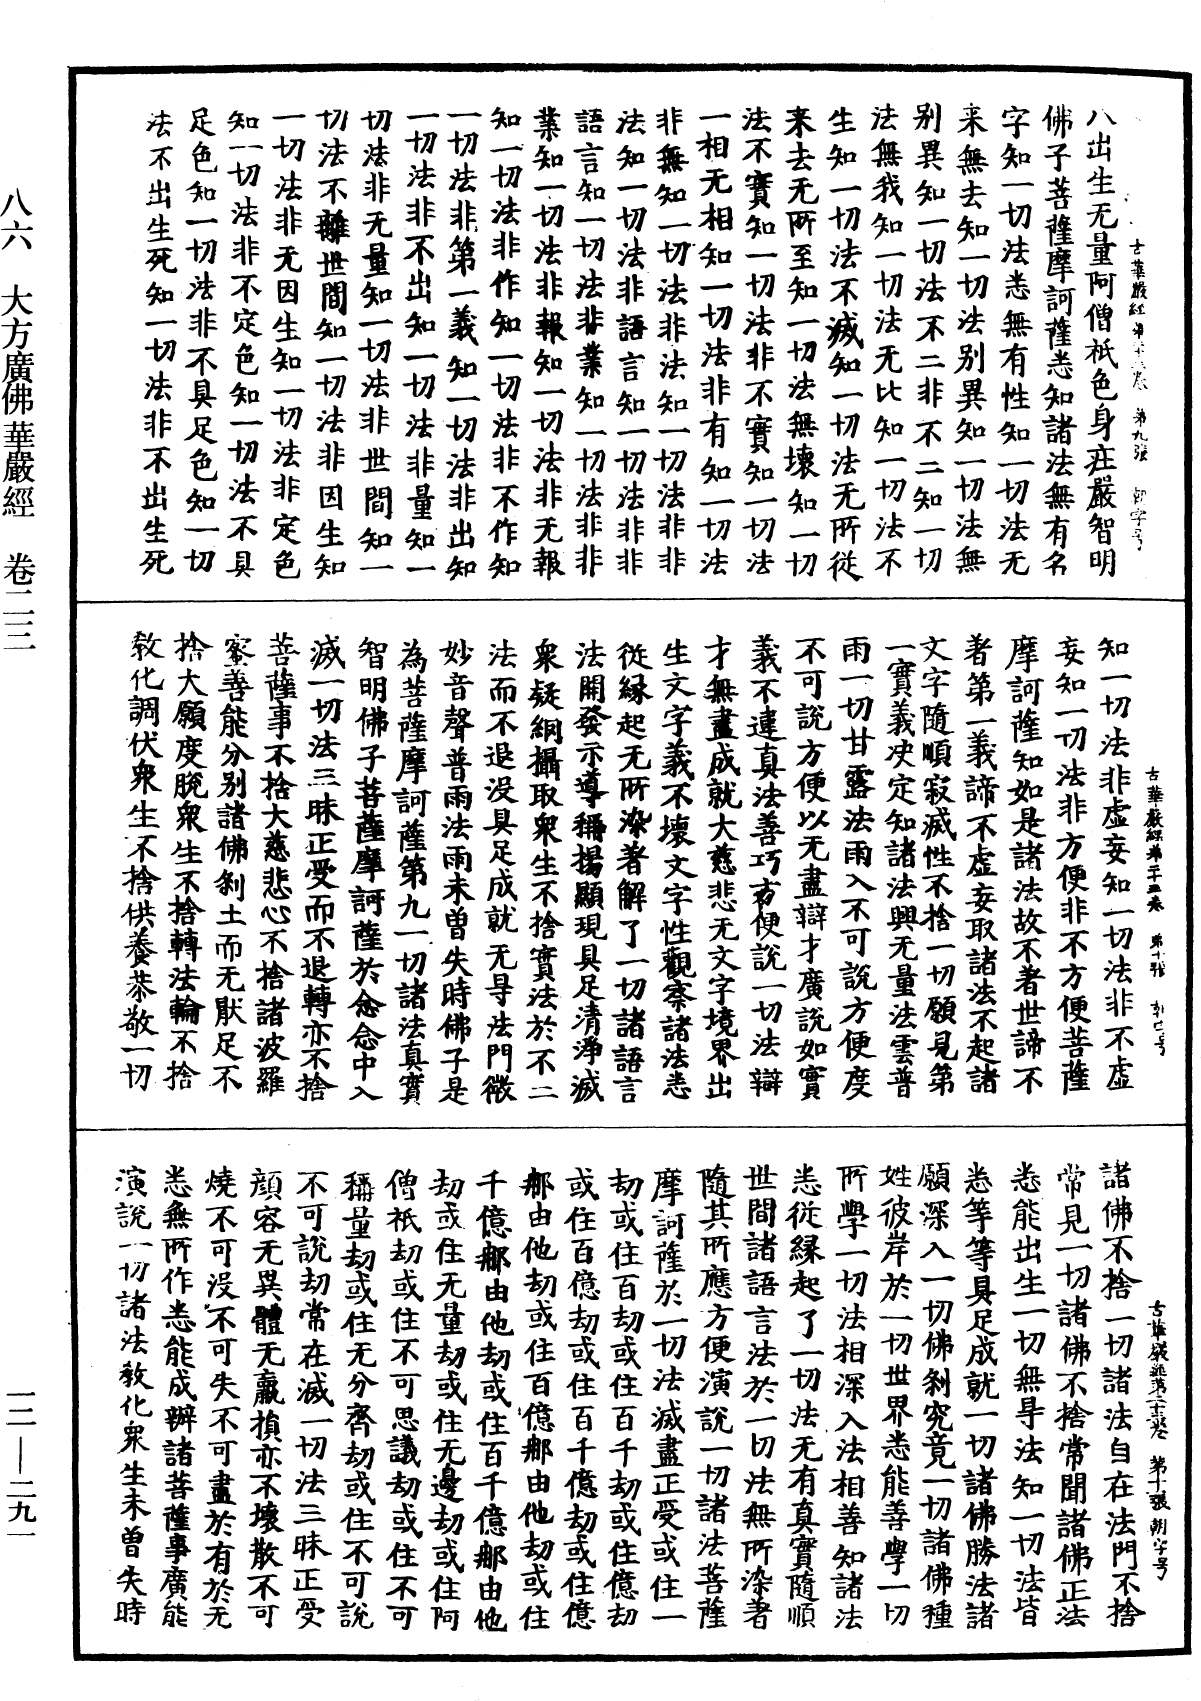 八出生无量阿僧祇色身庄嚴智明
佛子菩薩摩訶薩悉知諸法無有名
字知一切法悉無有性知一切法无
来無去知一切法别異知一切法無
别異知一切法不二非不二知一切
法無我知一切法无比知一切法不
生知一切法不滅知一切法无所從
来去无所至知一切法無壞知一切
法不實知一切法非不實知一切法
一相无相知一切法非有知一切法
非無知一切法非法知一切法非非
法知一切法非語言知一切法非非
語言知一切法非業知一切法非非
業知一切法非報知一切法非无報
知一切法非作知一切法非不作知
一切法非第一義知一切法非出知
一切法非不出知一切法非量知一
切法非无量知一切法非世間知一
切法不離世間知一切法非因生知
一切法非无因生知一切法非定色
知一切法非不定色知一切法不具
足色知一切法非不具足色知一切
法不出生死知一切法非不出生死
知一切法非虚妄知一切法非不虚
妄知一切法非方便非不方便菩薩
摩訶薩知如是諸法故不著世諦不
者第一義諦不虚妄取諸法不起諸
文字隨順寂滅性不捨一切願見第
一實義决定知諸法興无量法雲普
雨一切甘露法雨入不可說方便度
不可說方便以无盡辯才廣說如實
義不違真法善巧方便說一切法辯
才無盡成就大慈悲无文字境界出
生文字義不壞文字性觀察諸法悉
從緣起无所染著解了一切諸語言
法開發示導稱揚顯現具足清淨滅
衆疑網攝取衆生不捨實法於不二
法而不退没具足成就无㝵法門微
妙音聲普雨法雨未曽失時佛子是
為菩薩摩訶薩第九一切諸法真實
智明佛子菩薩摩訶薩於念念中入
滅一切法三昧正受而不退轉亦不捨
菩薩事不捨大慈悲心不捨諸波羅
蜜善能分别諸佛刹土而无猒足不
捨大願度脫衆生不捨轉法輪不捨
敎化調伏衆生不捨供養恭敬一切
諸佛不捨一切諸法自在法門不捨
常見一切諸佛不捨常聞諸佛正法
悉能出生一切無㝵法知一切法皆
悉等等具足成就一切諸佛勝法諸
願深入一切佛刹究竟一切諸佛種
姓彼岸於一切世界悉能善學一切
所學一切法相深入法相善知諸法
悉從緣起了一切法无有真實隨順
世間諸語言法於一切法無所染著
隨其所應方便演說一切諸法菩薩
摩訶薩於一切法滅盡正受或住一
劫或住百劫或住百千劫或住億劫
或住百億劫或住百千億劫或住億
那由他劫或住百億那由他劫或住
千億那由他劫或住百千億那由他
劫或住无量劫或住无邊劫或住阿
僧祇劫或住不可思議劫或住不可
稱量劫或住无分齊劫或住不可說
不可說劫常在滅一切法三昧正受
顔容无異體无羸損亦不壞散不可
燒不可没不可失不可盡於有於无
悉無所作悉能成辦諸菩薩事廣能
演說一切諸法敎化衆生未曽失時
八六　大方廣佛華嚴經　卷二三
一二—二九一